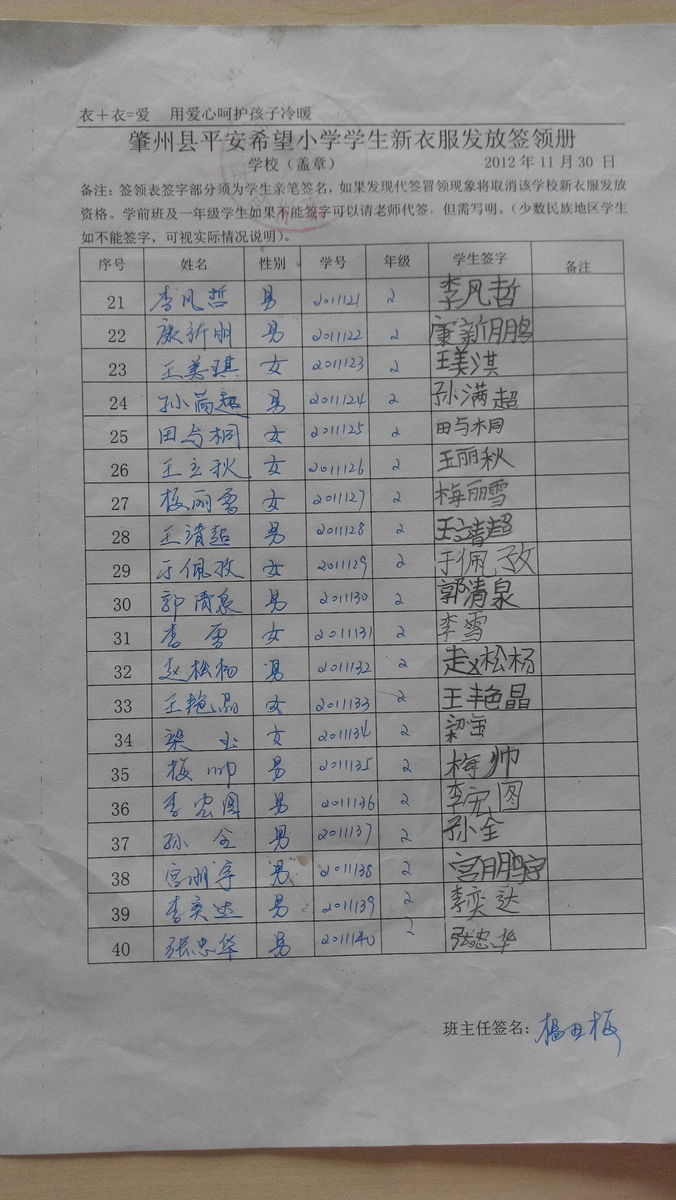 衣+衣=爱 用爱心呵护孩子冷暖
肇州县平安希望小学学生新衣服发放签领册
学校（盖章） 2012 年 11 月 30 日
备注：签领表签字部分须为学生亲笔签名，如果发现代签冒领现象将取消该学校新衣服发放
资格。学前班及一年级学生如果不能签字可以请老师代签，但需写明。（少数民族地区学生
如不能签字，可视实际情况说明）。
序号 姓名 性别 学号 年级 学生签字 备注
21 李风哲 男 2011121 2 李风哲
22 康新朋 男 2011122 2 康新鹏
23 王美琪 女 2011123 2 王美淇
24 孙満超 男 2011124 2 孙满超
25 田与桐 女 2011125 2 田与桐
26 王立秋 女 2011126 2 王丽秋
27 梅丽雪 女 2011127 2 梅丽雪
28 王靖超 男 2011128 2 王靖超
29 于佩孜 女 2011129 2 于佩孜
30 郭清泉 男 2011130 2 郭清泉
31 李雪 女 2011131 2 李雪
32 赵松杨 男 2011132 2 赵松杨
33 王艳晶 女 2011133 2 王艳晶
34 梁玉 女 2011134 2 梁宝
35 梅帅 男 2011135 2 梅帅
36 李宏图 男 2011136 2 李宏图
37 孙全 男 2011137 2 孙全
38 宫朋宇 男 2011138 2 宫鹏宇
39 李奕达 男 2011139 2 李奕达
40 张忠华 男 2011140 2 张忠华
班主任签名：杨田梅